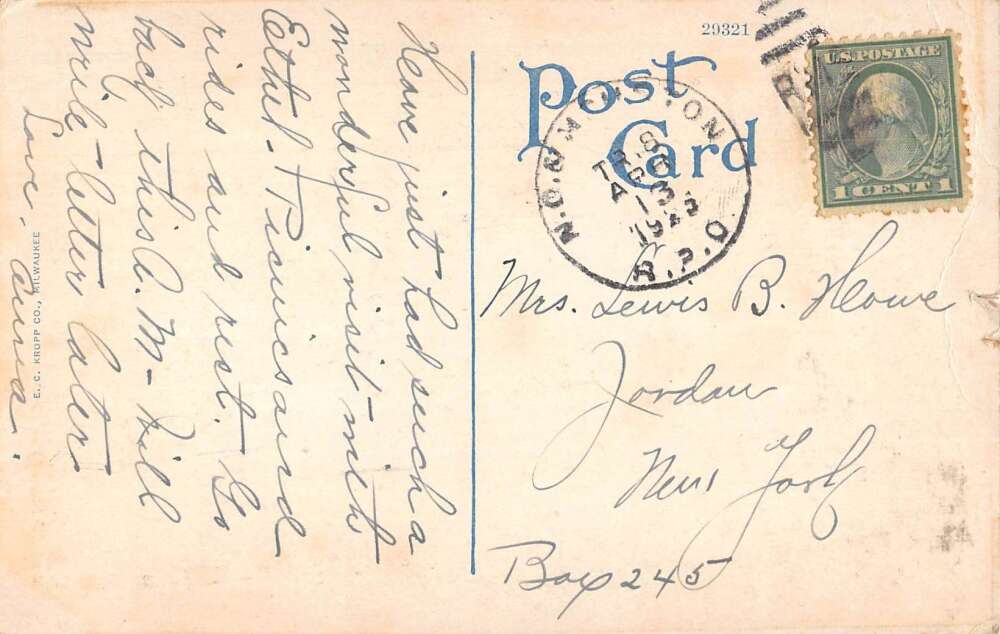 29321
Post
Card
U.S. POSTAGE
1 CENT 1
TR.8
AUG
13
1923
R.P.O.
Mrs. Lewis B. Howe
Jordan
New York
Box 245
Have just had such a
wonderful visit with
Ethel. Picnics and
rides and rest. Go
back this A.M - Will
write letter later
Love,
E. C. KROPP CO., MILWAUKEE